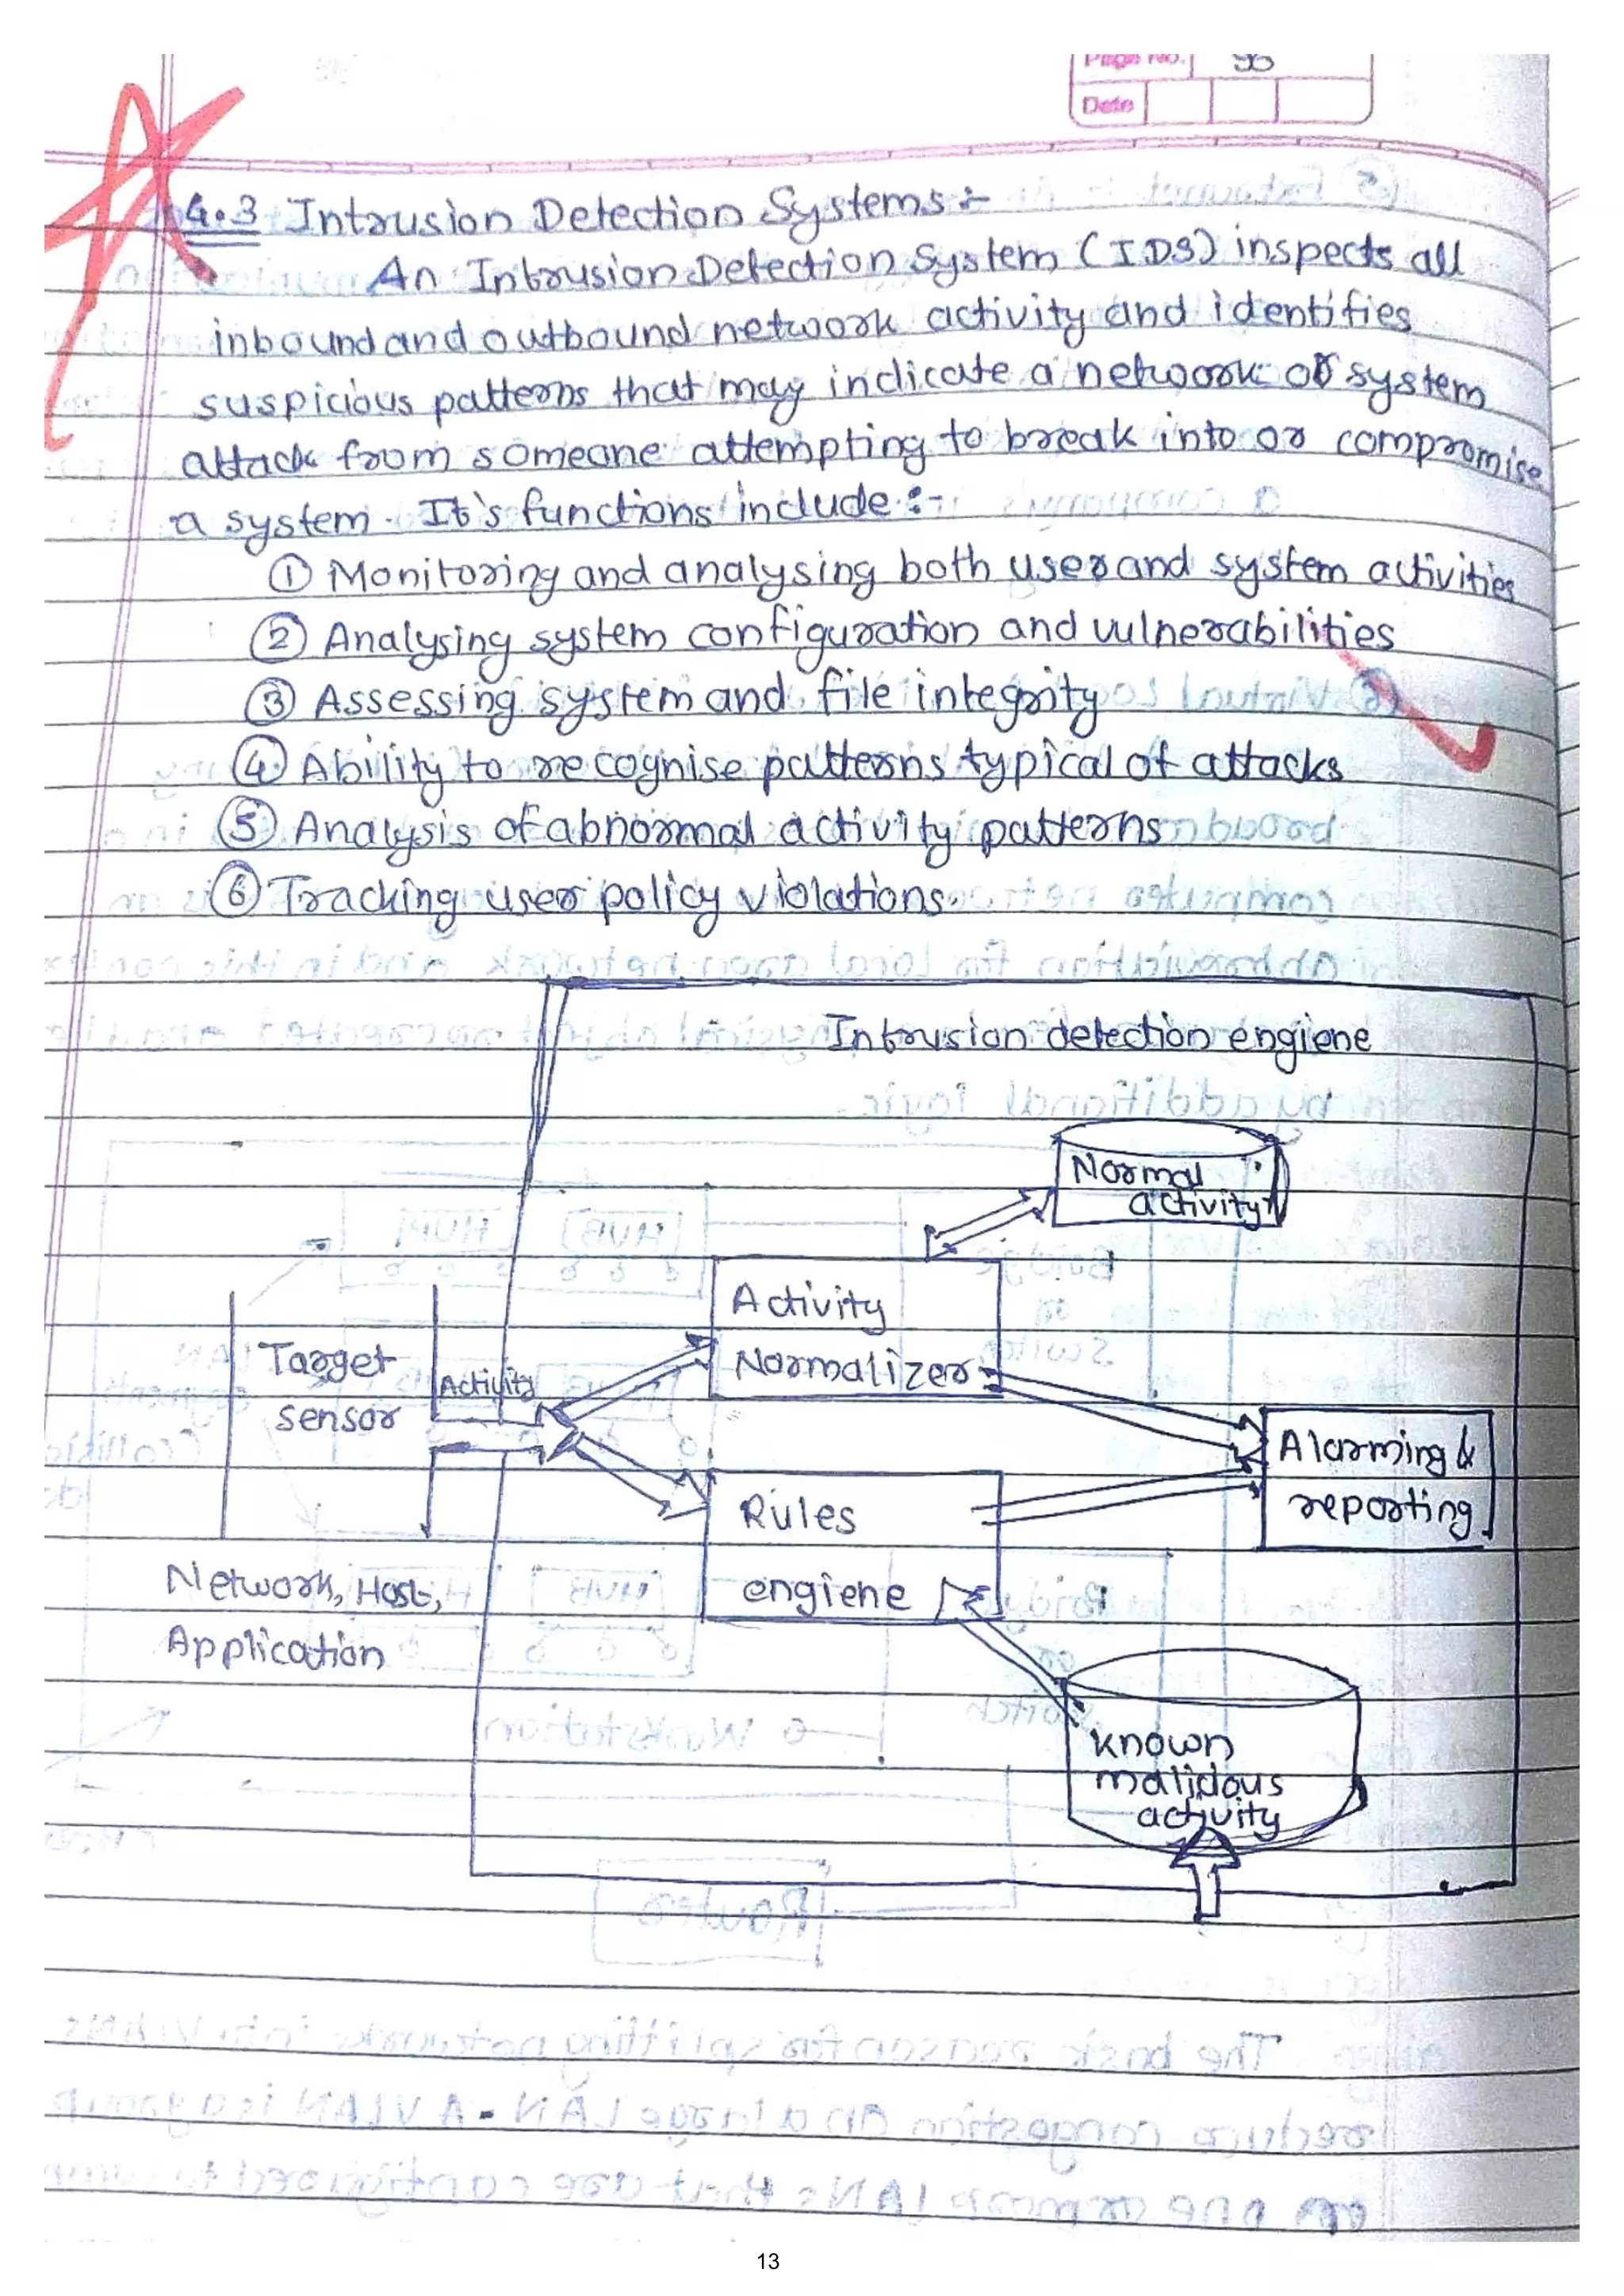 Page No.
Date
4.3 Intrusion Detection Systems :-
An Intrusion Detection System (IDS) inspects all
inbound and outbound network activity and identifies
suspicious patterns that may indicate a network or system
attack from someone attempting to break into or compromise
a system. It's functions include :-
① Monitoring and analysing both user and system activities
② Analysing system configuration and vulnerabilities
③ Assessing system and file integrity
④ Ability to recognise patterns typical of attacks
⑤ Analysis of abnormal activity patterns
⑥ Tracking user policy violations.
Intrusion detection engiene
Normal
activity
Activity
Normalizer
Target
sensor
Activity
Alarming &
reporting
Rules
engiene
Network, Host,
Application
known
malidous
activity
13